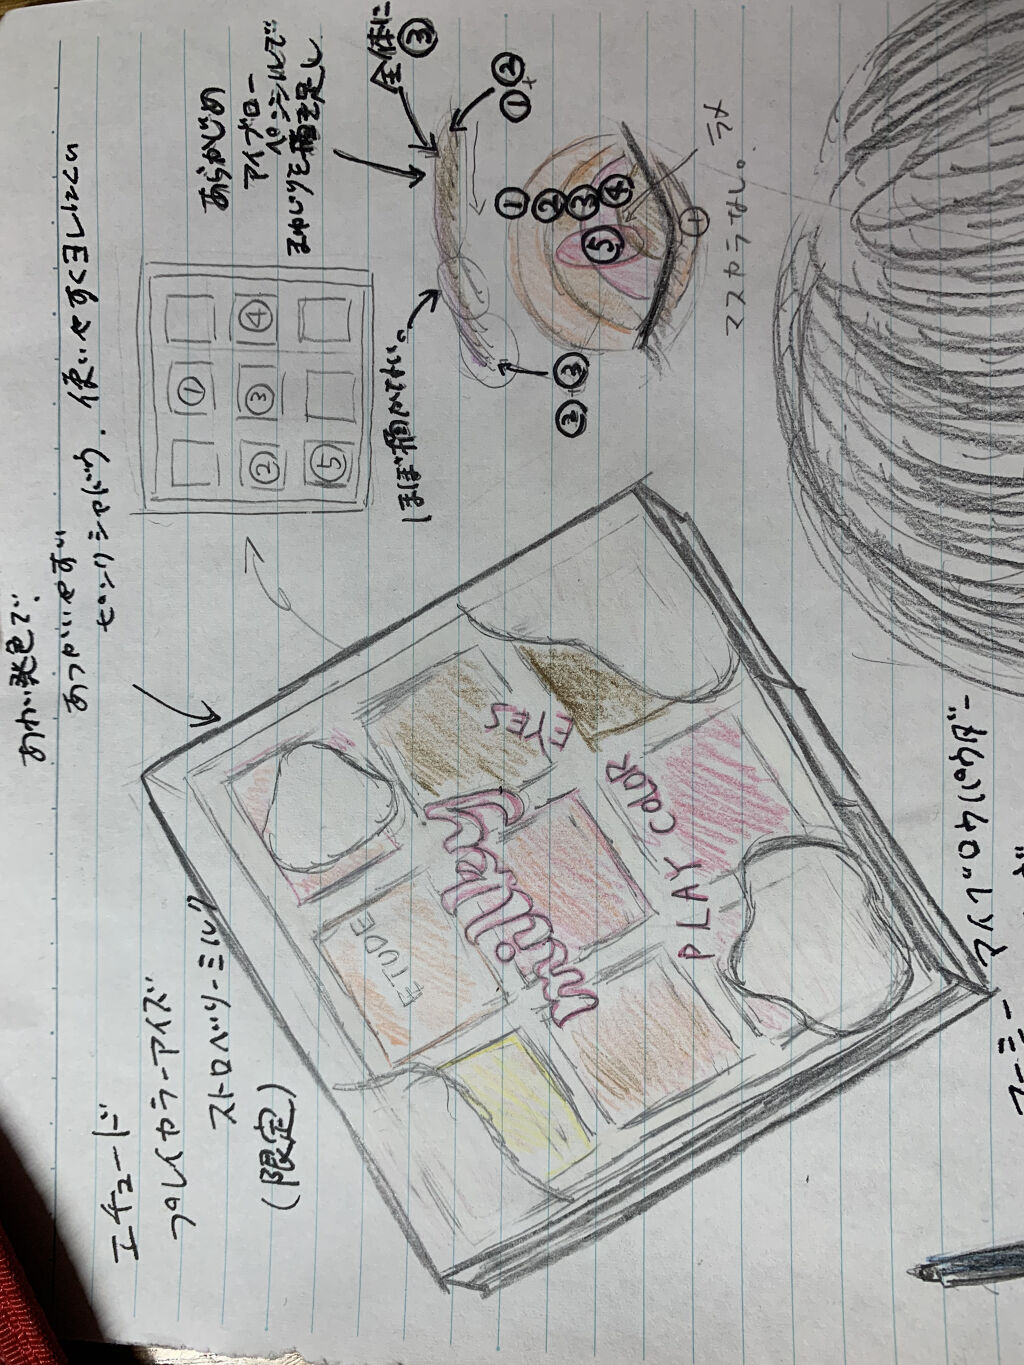 エチュード
プレイカラーアイズ
ストロベリーミルク
(限定)
あわい発色で、
あつかいやすい
ピンクシャドウ。使いやすくヨレにくい
ETUDE
milky
PLAY COLOR
EYES
①
② ③ ④
⑤
あらかじめ
アイブロー
ペンシルで
全体に③
②
①
ほぼ描かない。
②+③
①
②
③
④
⑤
①
ラメ
マスカラなし。
マイブロウパウダー